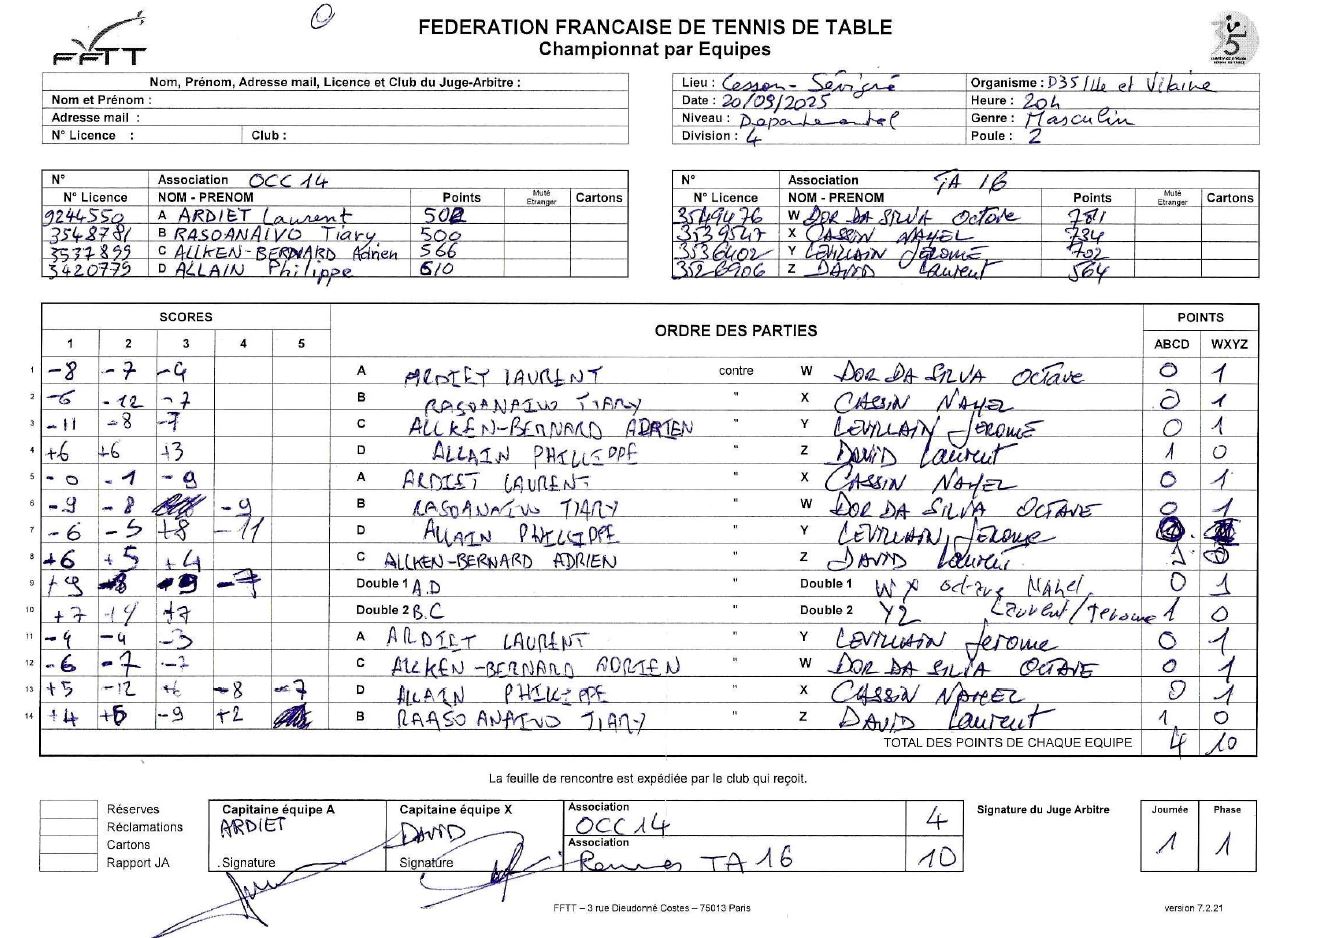 FEDERATION FRANCAISE DE TENNIS DE TABLE
Championnat par Equipes
FFTT
Nom, Prénom, Adresse mail, Licence et Club du Juge-Arbitre :
Nom et Prénom :
Adresse mail :
N° Licence : Club :
Lieu : Cesson-Sévigné Organisme : D35/Ille et Vilaine
Date : 20/09/2025 Heure : 20h
Niveau : Départemental Genre : Masculin
Division : 4 Poule : 2
N° Association OCC 14
N° Licence NOM - PRENOM Points Muté Etranger Cartons
9244550 A ARDIET Laurent 502
3548781 B RASOANAIVO Tiary 500
3537899 C ALLKEN-BERNARD Adrien 566
3420775 D ALLAIN Philippe 610
N° Association TA 16
N° Licence NOM - PRENOM Points Muté Etranger Cartons
3549476 W DOR DA SILVA Octave 781
3539547 X CASSIN NAHEL 734
3536402 Y LEVILLAIN JEROME 702
3526906 Z DAVID Laurent 564
SCORES ORDRE DES PARTIES POINTS
1 2 3 4 5 ABCD WXYZ
1 -8 -7 -4 A ARDIET LAURENT contre W DOR DA SILVA OCTAVE 0 1
2 -6 -12 -7 B RASOANAIVO TIARY " X CASSIN NAHEL 0 1
3 -11 -8 -7 C ALLKEN-BERNARD ADRIEN " Y LEVILLAIN JEROME 0 1
4 +6 +6 +3 D ALLAIN PHILIPPE " Z DAVID Laurent 1 0
5 -0 -1 -9 A ARDIET LAURENT " X CASSIN NAHEL 0 1
6 -9 -8 -9 B RASOANAIVO TIARY " W DOR DA SILVA OCTAVE 0 1
7 -6 -5 +8 -11 D ALLAIN PHILIPPE " Y LEVILLAIN Jerome
8 +6 +5 +4 C ALLKEN-BERNARD ADRIEN " Z DAVID Laurent 1 0
9 +9 -8 -9 -7 Double 1 A.D " Double 1 WX octave Nahel 0 1
10 +7 +7 Double 2 B.C " Double 2 YZ Laurent/Jerome 1 0
11 -4 -4 -3 A ARDIET LAURENT " Y LEVILLAIN Jerome 0 1
12 -6 -7 -7 C ALLKEN-BERNARD ADRIEN " W DOR DA SILVA OCTAVE 0 1
13 +5 -12 +6 -8 -7 D ALLAIN PHILIPPE " X CASSIN NAHEL 0 1
14 +4 +6 -9 +2 B RAASOANAIVO TIARY " Z DAVID Laurent 1 0
TOTAL DES POINTS DE CHAQUE EQUIPE 4 10
La feuille de rencontre est expédiée par le club qui reçoit.
Réserves
Réclamations
Cartons
Rapport JA
Capitaine équipe A
ARDIET
Signature
Capitaine équipe X
DAVID
Signature
Association
OCC 14 4
Association
Rennes TA 16 10
Signature du Juge Arbitre
Journée Phase
1 1
FFTT – 3 rue Dieudonné Costes – 75013 Paris
version 7.2.21